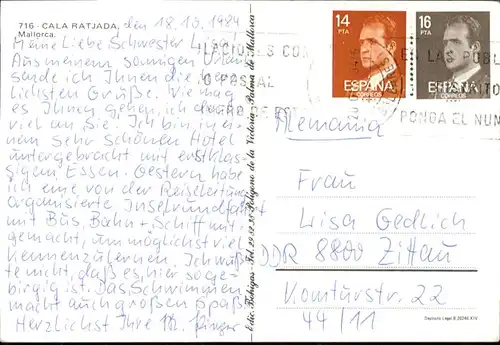 716 - CALA RATJADA, den 18.10.1984
Mallorca.
Meine Liebe Schwester Lisa!
Aus meinem sonnigen Urlaub
sende ich Ihnen die herz-
lichsten Grüße. Wie mag
es Ihnen gehen, ich denke
viel an Sie. Ich bin in ei-
nem sehr schönen Hotel
untergebracht mit erstklas-
sigem Essen. Gestern habe
ich eine von der Reiseleitung
Organisierte, Inselrundfahrt
mit Bus, Bahn + Schiff mit-
gemacht, um möglichst viel
kennenzulernen. Ich wuß-
te nicht, daß es hier so ge-
birgig ist. Das Schwimmen
macht auch großen Spaß
Herzlichst Ihre M.
Palma de Mallorca
14
PTA
ESPAÑA
CORREOS
16
PTA
ESPAÑA
CORREOS
PONGA EL NUM
Alemania
Frau
Lisa Gedlich
DDR 8800 Zittau
Komturstr. 22
44/11